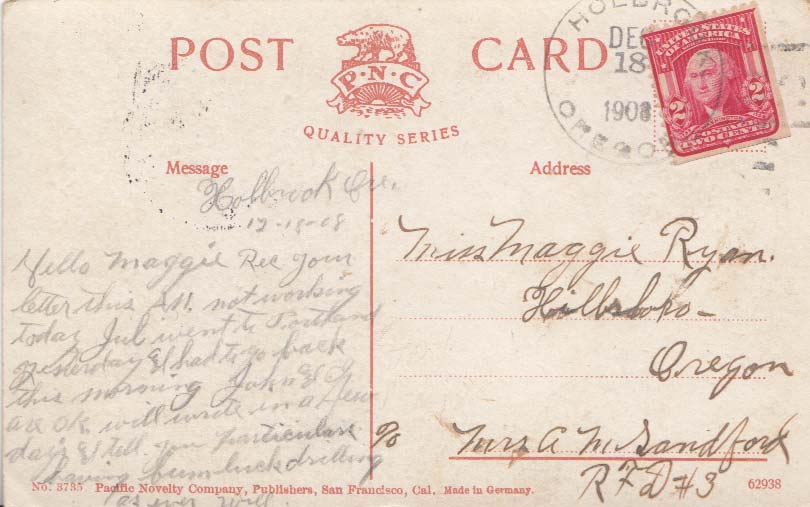 POST CARD
P·N·C
QUALITY SERIES
HOLBRO
DEC
18
1908
OREGO
UNITED STATES
OF AMERICA
2 2
POSTAGE
TWO CENTS
Message
Address
Holbrook Ore.
12-18-08
Hello Maggie Rec your
letter this AM. not working
today Jul went to Portland
yesterday & had to go back
this morning John & I
are ok. will write in a few
days & tell you particulars
having bum luck drilling
as ever Will
Miss Maggie Ryan.
Hillsboro-
Oregon
℅ Mrs A M Sandford
RFD #3
No. 3735 Pacific Novelty Company, Publishers, San Francisco, Cal. Made in Germany.
62938